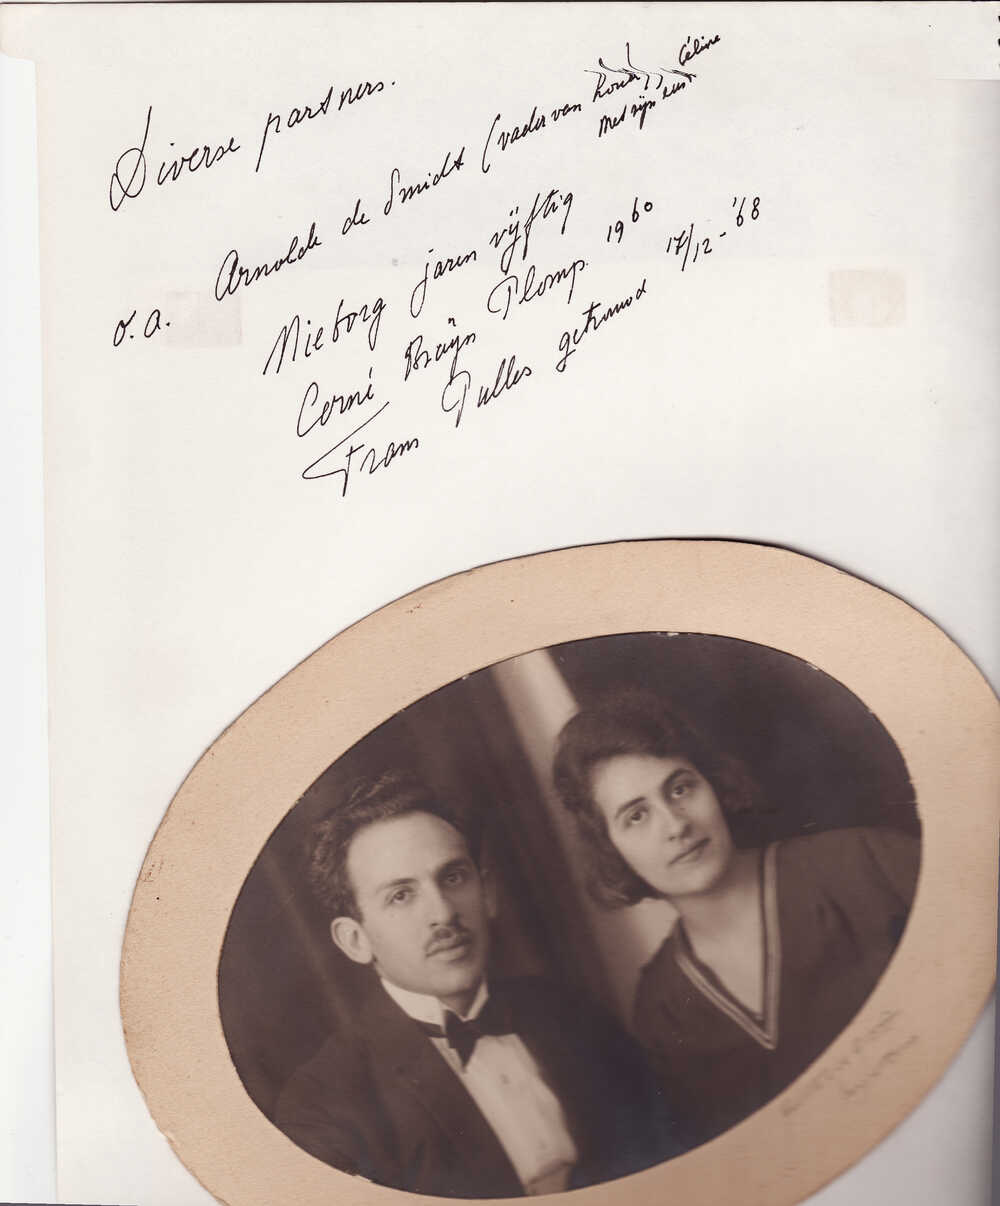 Diverse partners.
o.a. Arnolde de Smidt (vader van Céline
Met zijn
Nieborg jaren vijftig
Corné Bruijn Plomp. 1960
Frans Pulles getrouwd 17/12-'68